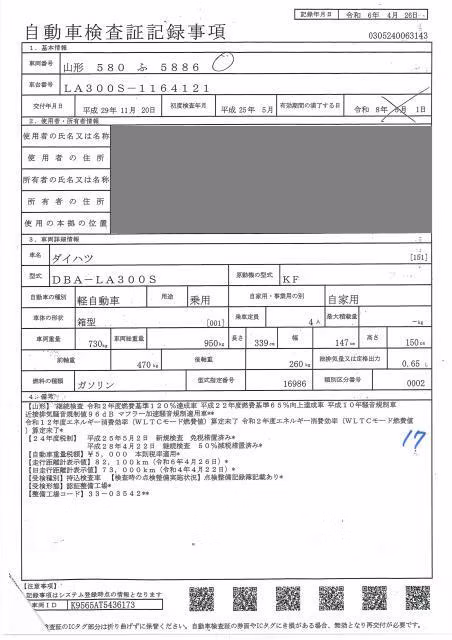 記録年月日 令和 6年 4月 26日
自動車検査証記録事項
0305240063143
1. 基本情報
車両番号 山形 580 ふ 5886
車台番号 LA300S-1164121
交付年月日 平成 29年 11月 20日 初度検査年月 平成 25年 5月 有効期間の満了する日 令和 8年 5月 1日
2. 使用者・所有者情報
使用者の氏名又は名称
使用者の住所
所有者の氏名又は名称
所有者の住所
使用の本拠の位置
3. 車両詳細情報
車名 ダイハツ [151]
型式 DBA-LA300S 原動機の型式 KF
自動車の種別 軽自動車 用途 乗用 自家用・事業用の別 自家用
車体の形状 箱型 [001] 乗車定員 4人 最大積載量 -kg
車両重量 730kg 車両総重量 950kg 長さ 339cm 幅 147cm 高さ 150cm
前前軸重 470kg 後後軸重 260kg 総排気量又は定格出力 0.65 L
燃料の種類 ガソリン 型式指定番号 16986 類別区分番号 0002
4. 備考
【山形】 継続検査 令和2年度燃費基準120%達成車 平成22年度燃費基準65%向上達成車 平成10年騒音規制車
近接排気騒音規制値96dB マフラー加速騒音規制適用車**
令和12年度エネルギー消費効率(WLTCモード燃費値)算定未了 令和2年度エネルギー消費効率(WLTCモード燃費値
)算定未了*
【24年度税制】 平成25年5月2日 新規検査 免税措置済み*
平成28年4月22日 継続検査 50%減税措置済み*
【自動車重量税額】¥5,000 本則税率適用*
【走行距離計表示値】82,100km(令和6年4月26日)*
【旧走行距離計表示値】73,000km(令和4年4月22日)*
【受検種別】持込検査車 【検査時の点検整備実施状況】点検整備記録簿記載あり*
【受検形態】認証整備工場*
【整備工場コード】33-03542**
17
【注意事項】
記録事項はシステム登録時点の情報となります
車両ID K9565AT5436173
検査証のICタグ部分は折り曲げずに保管ください。自動車検査証の券面やICタグにき損がある場合、無効となり再交付が必要です。